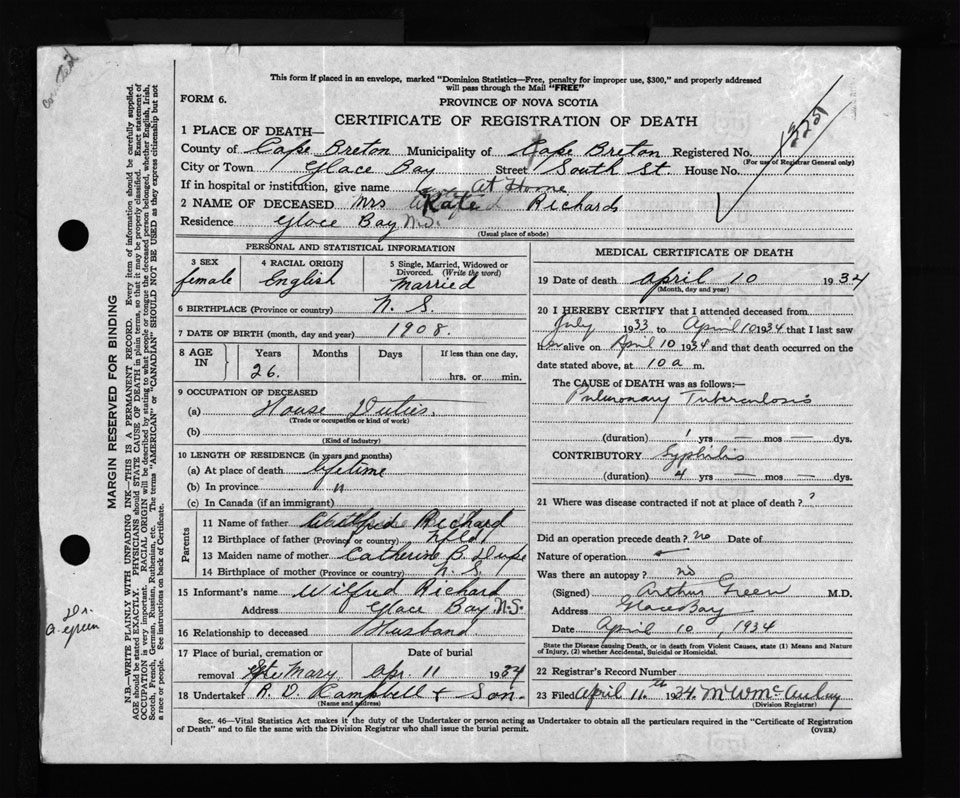 Corrected
This form if placed in an envelope, marked "Dominion Statistics—Free, penalty for improper use, $300," and properly addressed
will pass through the Mail "FREE"
FORM 6.
PROVINCE OF NOVA SCOTIA
CERTIFICATE OF REGISTRATION OF DEATH
1325
1 PLACE OF DEATH—
County of Cape Breton Municipality of Cape Breton Registered No.
(For use of Registrar General only)
City or Town Glace Bay Street South St. House No.
If in hospital or institution, give name At Home
2 NAME OF DECEASED Mrs Kate Richards
Residence Glace Bay N.S.
(Usual place of abode)
PERSONAL AND STATISTICAL INFORMATION
3 SEX female
4 RACIAL ORIGIN English
5 Single, Married, Widowed or Divorced. (Write the word) Married
6 BIRTHPLACE (Province or country) N. S.
7 DATE OF BIRTH (month, day and year) 1908.
8 AGE IN Years Months Days If less than one day,
26. hrs. or min.
9 OCCUPATION OF DECEASED
(a) House Duties
(Trade or occupation or kind of work)
(b)
(Kind of industry)
10 LENGTH OF RESIDENCE (in years and months)
(a) At place of death lifetime
(b) In province "
(c) In Canada (if an immigrant)
Parents
11 Name of father Richard
12 Birthplace of father (Province or country) Nfld
13 Maiden name of mother Catherine B.
14 Birthplace of mother (Province or country) N. S.
15 Informant's name Wilfred Richard
Address Glace Bay N.S.
16 Relationship to deceased Husband
17 Place of burial, cremation or removal Date of burial
St Mary Apr. 11 1934
18 Undertaker R. D. Campbell & Son.
(Name and address)
MEDICAL CERTIFICATE OF DEATH
19 Date of death April 10 1934
(Month, day and year)
20 I HEREBY CERTIFY that I attended deceased from
July 1933 to April 10 1934 that I last saw
her alive on April 10 1934 and that death occurred on the
date stated above, at 10 a m.
The CAUSE of DEATH was as follows:—
Pulmonary Tuberculosis
(duration) 1 yrs — mos — dys.
CONTRIBUTORY Syphilis
(duration) 4 yrs — mos — dys.
21 Where was disease contracted if not at place of death? ?
Did an operation precede death? no Date of
Nature of operation
Was there an autopsy? no
(Signed) Arthur Green M.D.
Address Glace Bay
Date April 10, 1934
State the Disease causing Death, or in death from Violent Causes, state (1) Means and Nature of Injury, (2) whether Accidental, Suicidal or Homicidal.
22 Registrar's Record Number
23 Filed April 11th 1934. McAulay
(Division Registrar)
Sec. 46—Vital Statistics Act makes it the duty of the Undertaker or person acting as Undertaker to obtain all the particulars required in the "Certificate of Registration
of Death" and to file the same with the Division Registrar who shall issue the burial permit.
(OVER)
MARGIN RESERVED FOR BINDING
N.B.—WRITE PLAINLY WITH UNFADING INK—THIS IS A PERMANENT RECORD. Every item of information should be carefully supplied.
AGE should be stated EXACTLY. PHYSICIANS should STATE CAUSE OF DEATH in plain terms, so that it may be properly classified. Exact statement of
OCCUPATION is very important. RACIAL ORIGIN will be described by stating to what people or tongue the deceased person belonged, whether English, Irish,
Scotch, French, German, Russian, Ruthenian, etc. The terms "AMERICAN" or "CANADIAN" SHOULD NOT BE USED as they express citizenship but not
a race or people. See instructions on back of Certificate.
Dr.
A. Green